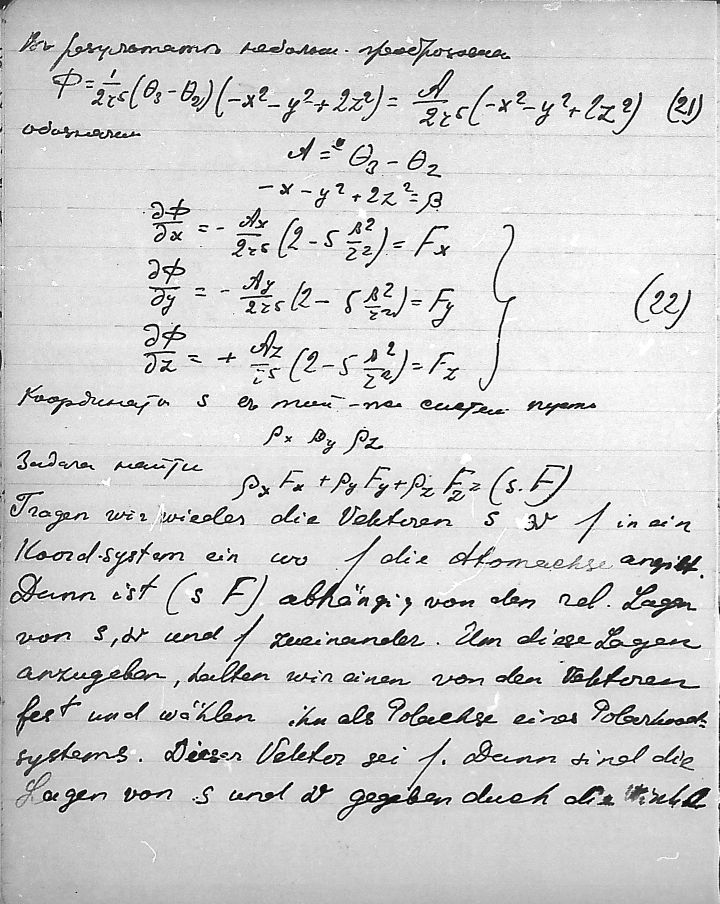 Въ результатѣ небольш. преобразован
Φ = 1/2r⁵ (Θ₃ − Θ₂) (−x² − y² + 2z²) = A/2r⁵ (−x² − y² + 2z²) (21)
обозначим
A = Θ₃ − Θ₂
−x − y² + 2z² = β
∂Φ/∂x = − Ax/2r⁵ (2 − 5 β²/r²) = Fx
∂Φ/∂y = − Ay/2r⁵ (2 − 5 β²/r²) = Fy (22)
∂Φ/∂z = + Az/r⁵ (2 − 5 β²/r²) = Fz
Координаты s въ той-же систем пусть
ρx ρy ρz
Задача найти
ρx Fx + ρy Fy + ρz Fz = (s. F)
Tragen wir wieder die Vektoren s f in ein
Koord-system ein wo f die Atomachse angibt.
Dann ist (s F) abhängig von den rel. Lagen
von s, und f zueinander. Um diese Lagen
anzugeben, halten wir einen von den Vektoren
fest und wählen ihn als Polachse eines Polarkoord-
systems. Dieser Vektor sei f. Dann sind die
Lagen von s und gegeben duch die Winkel